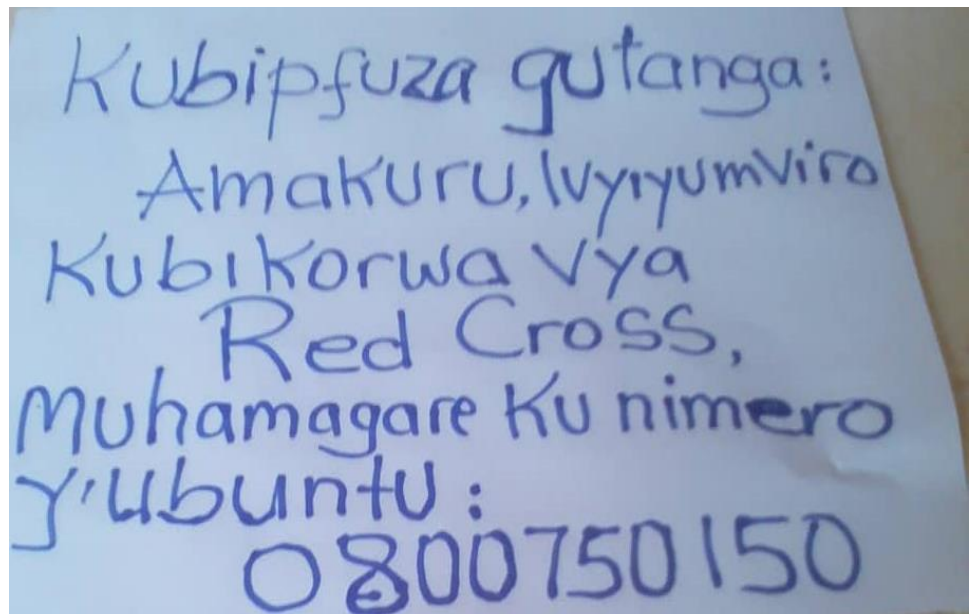 Kubipfuza gutanga:
Amakuru, Ivyıyumviro
Kubıkorwa vya
Red Cross,
Muhamagare Ku nimero
y'ubuntu:
0800750150